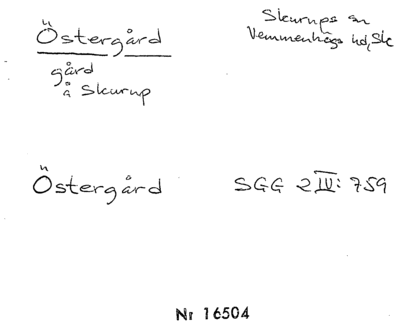 Östergård
Skurups sn
Vemmenhögs hd, Sk
gård
å Skurup
Östergård
SGG 2 IV: 759
Nr 16504